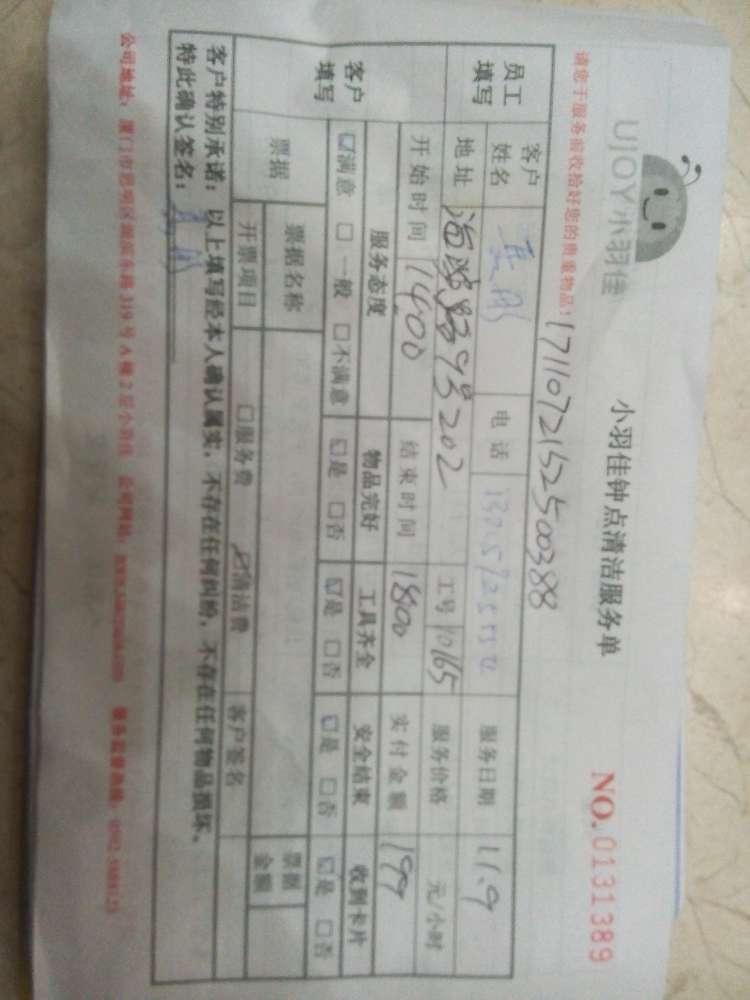 UJOY小羽佳
小羽佳钟点清洁服务单
NO.0131389
请您于服务前收拾好您的贵重物品!
17110721525500388
员工填写 客户姓名 电话 服务日期 11.9
地址 202 工号 10165 服务价格 元/小时
开始时间 1400 结束时间 1800 实付金额 199
客户填写 服务态度 物品完好 工具齐全 安全结束 收到卡片
☑满意 □一般 □不满意 ☑是 □否 ☑是 □否 ☑是 □否 ☑是 □否
票据 票据名称 票据金额
开票项目 □服务费 ☑清洁费 客户签名
客户特别承诺:以上填写经本人确认属实,不存在任何纠纷,不存在任何物品损坏。
特此确认签名:
公司地址:厦门市思明区湖滨东路319号A幢2层小羽佳 公司网站: 服务监督热线: